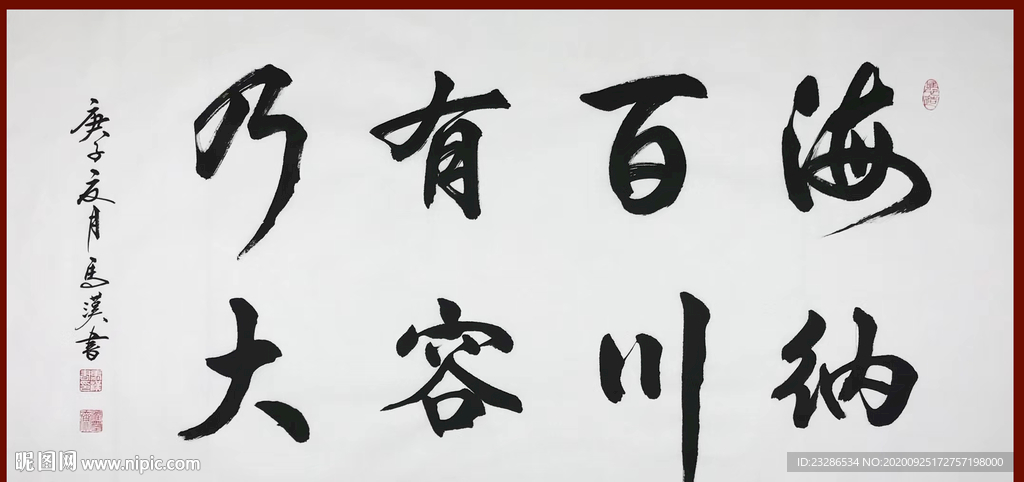 海纳
百川
有容
乃大
庚子夏月馬漢書
昵图网 www.nipic.com
ID:23286534 NO:20200925172757198000